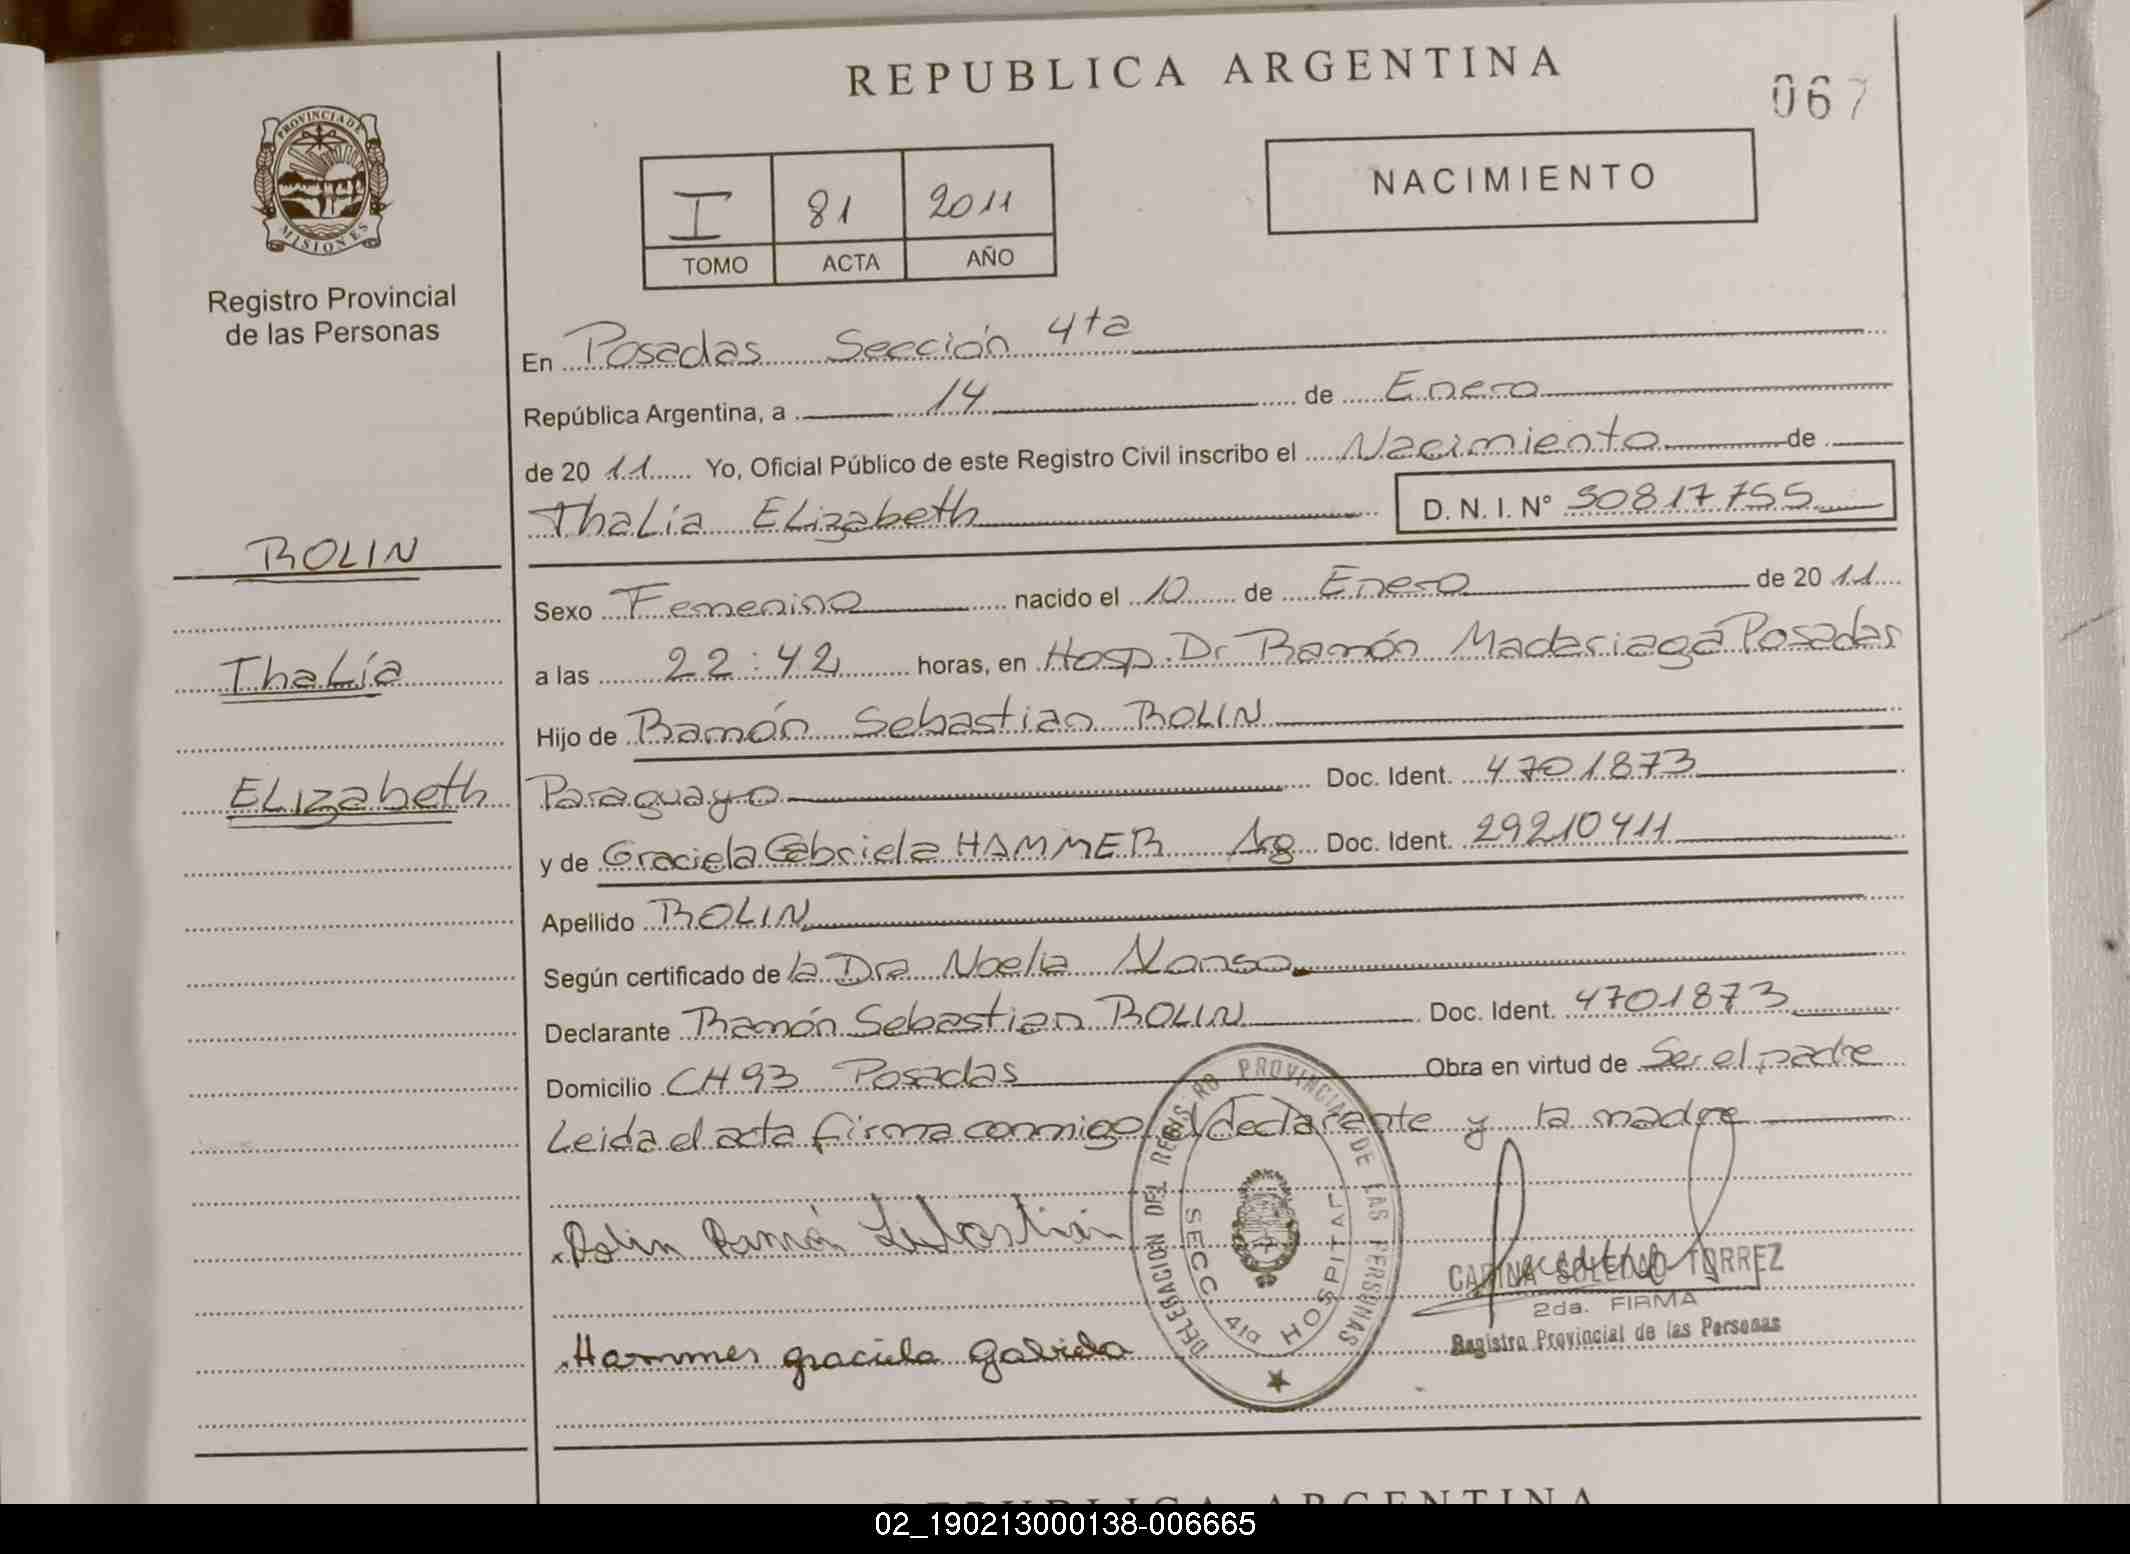 REPUBLICA ARGENTINA
067
PROVINCIA DE
MISIONES
Registro Provincial
de las Personas
I 81 2011
TOMO ACTA AÑO
NACIMIENTO
En Posadas Sección 4ta
República Argentina, a 14 de Enero
de 20 11 Yo, Oficial Público de este Registro Civil inscribo el Nacimiento de
Thalía Elizabeth D. N. I. N° 50817755
ROLIN
Thalía
Elizabeth
Sexo Femenino nacido el 10 de Enero de 20 11
a las 22:42 horas, en Hosp. Dr Ramón Madariaga Posadas
Hijo de Ramón Sebastian ROLIN
Paraguayo Doc. Ident. 4701873
y de Graciela Gabriela HAMMER Arg Doc. Ident. 29210411
Apellido ROLIN
Según certificado de la Dra Noelia Alonso
Declarante Ramón Sebastian ROLIN Doc. Ident. 4701873
Domicilio CH 93 Posadas Obra en virtud de Ser el padre
Leida el acta firma conmigo el declarante y la madre
Rolin Ramón Sebastián
Hammer graciela gabriela
DELEGACION DEL REGISTRO PROVINCIAL DE LAS PERSONAS
SECC 4ta HOSPITAL
CARINA SOLEDAD TORREZ
2da. FIRMA
Registro Provincial de las Personas
REPUBLICA ARGENTINA
02_190213000138-006665